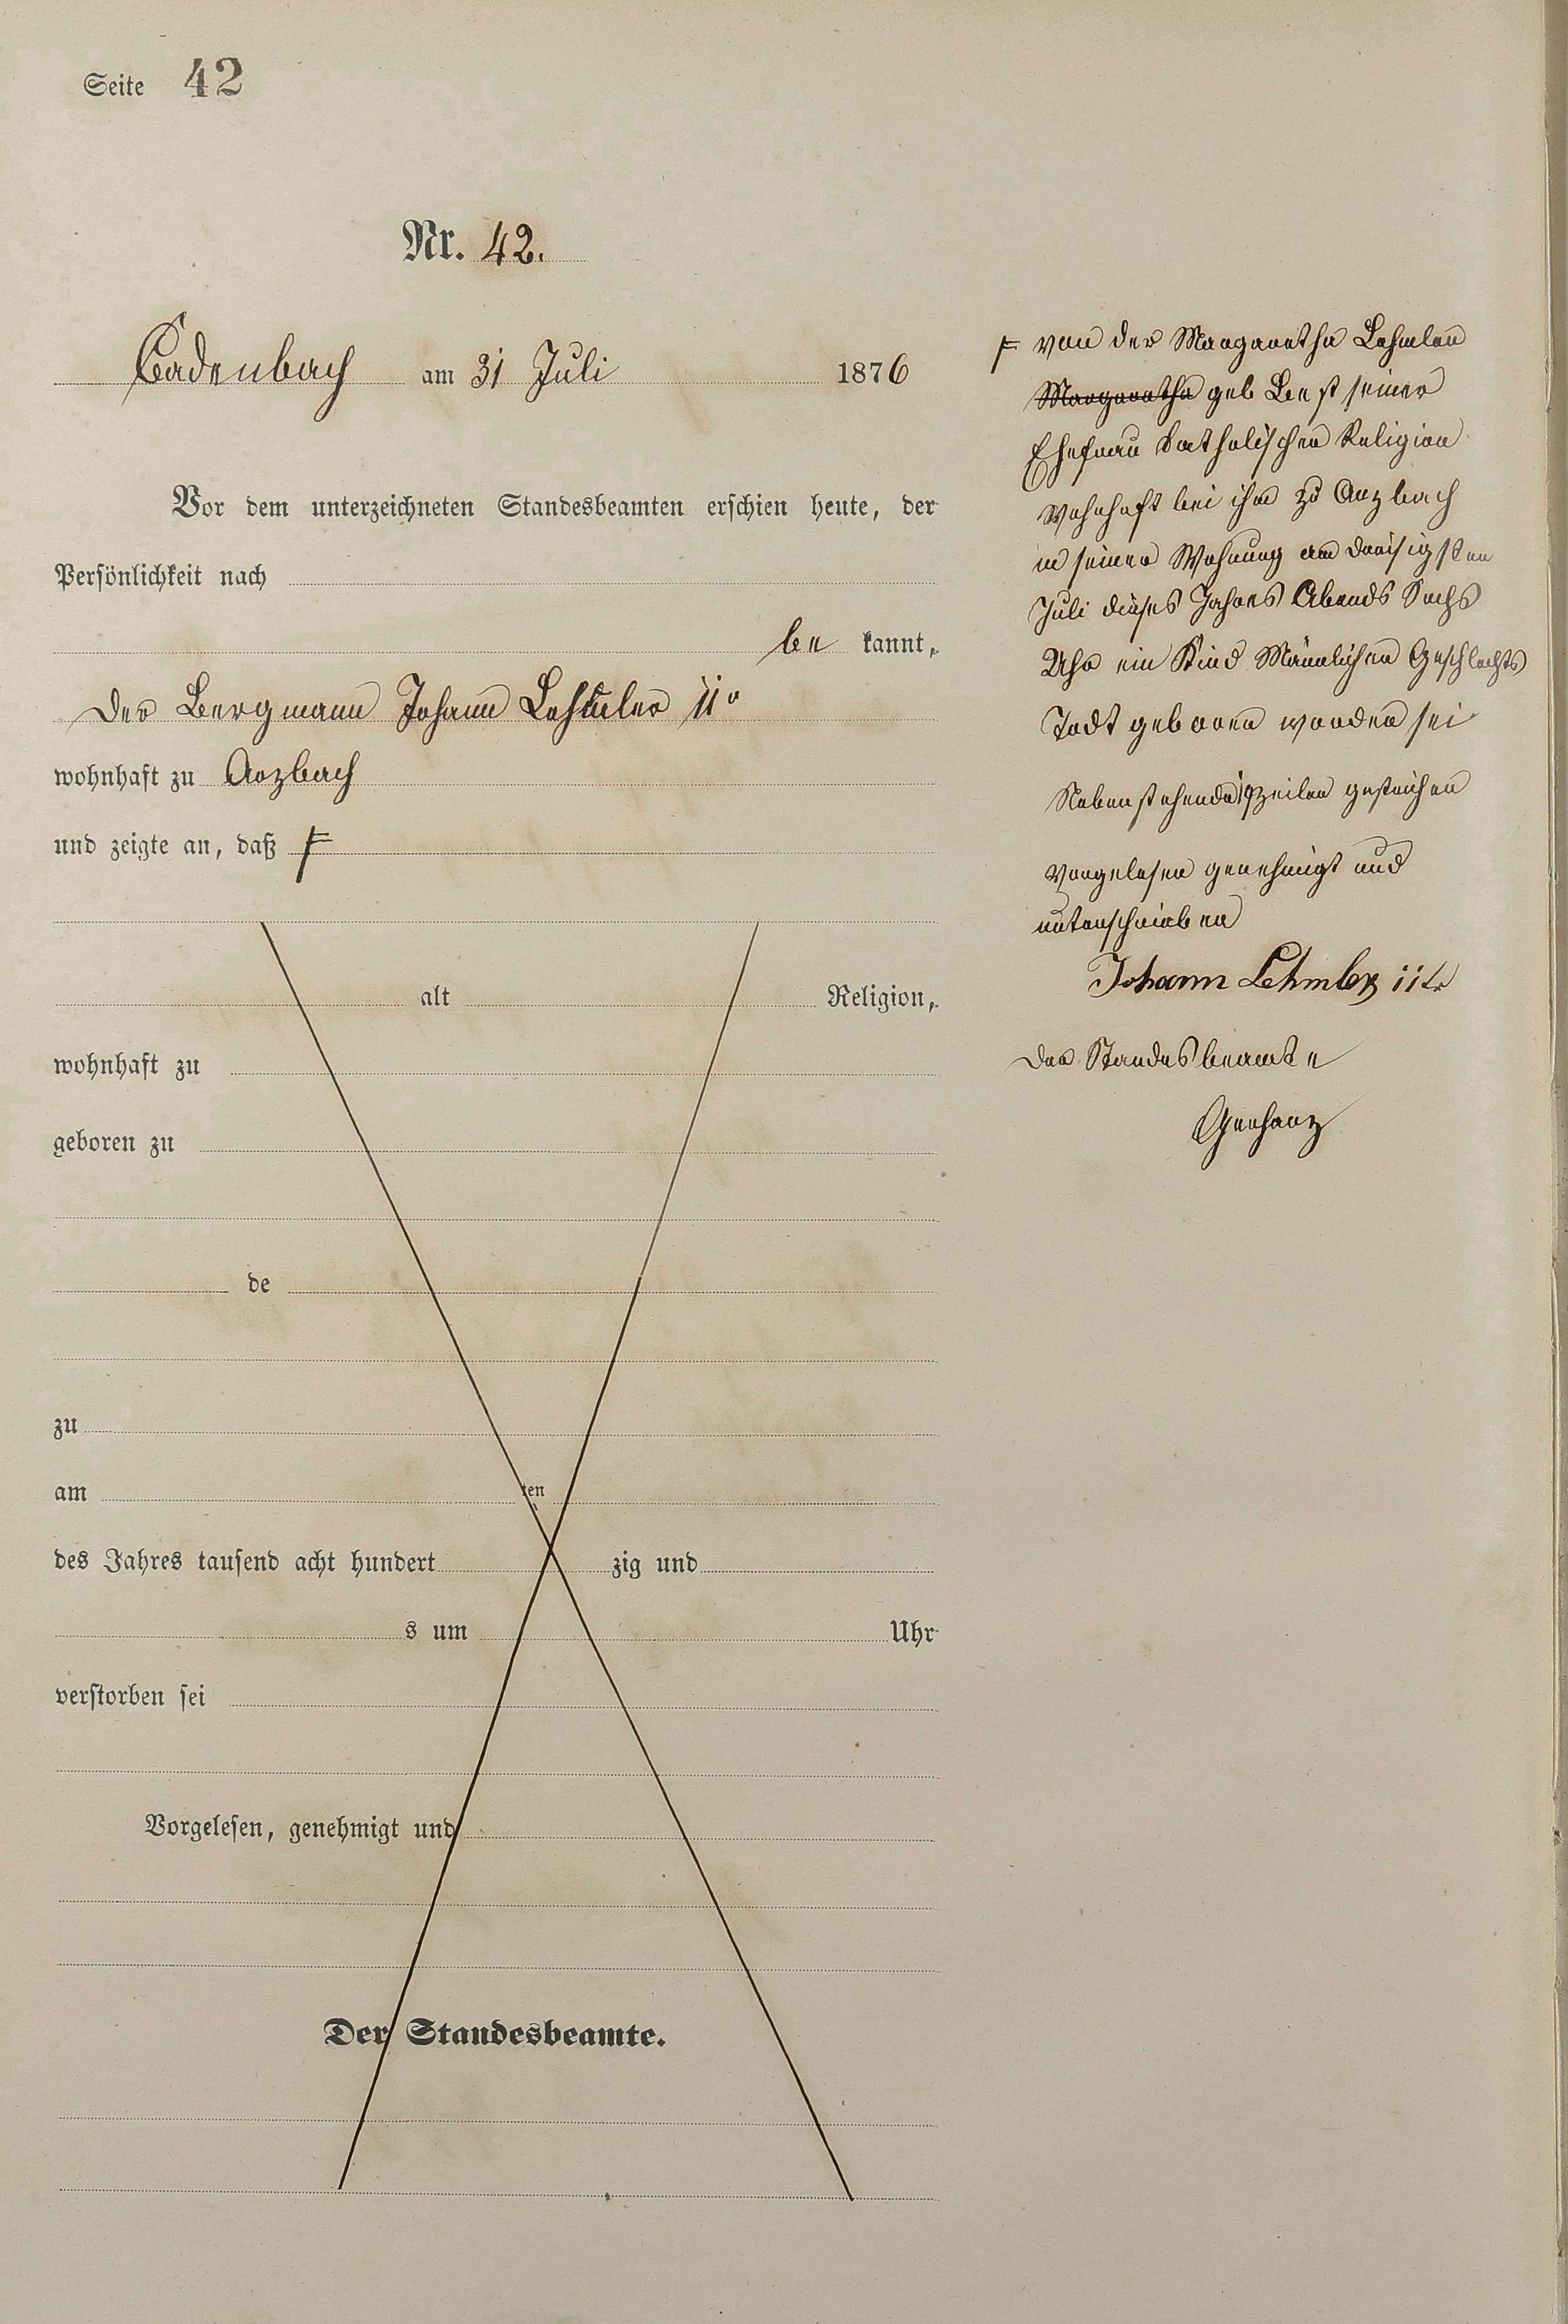 Seite 42
Nr. 42.
Cadenbach am 31 Juli 1876
Vor dem unterzeichneten Standesbeamten erschien heute, der
Persönlichkeit nach
be kannt,
der Bergmann Johann Lehmler II
wohnhaft zu Arzbach
und zeigte an, daß F
alt Religion,
wohnhaft zu
geboren zu
de
zu
am ten
des Jahres tausend acht hundert zig und
s um Uhr
verstorben sei
Vorgelesen, genehmigt und
Der Standesbeamte.
F von der Margaretha Lehmler
Margaretha geb Best seiner
Ehefrau katholischer Religion
wohnhaft bei ihm zu Arzbach
in seiner Wohnung am dreisigsten
Juli dieses Jahres Abends Sechs
Uhr ein Kind Männlichen Geschlechts
Todt geboren worden sei
Nebenstehende 19 zeilen gestrichen
Vorgelesen genehmigt und
unterschrieben
Johann Lehmler IIte
Der Standesbeamte
Gerharz